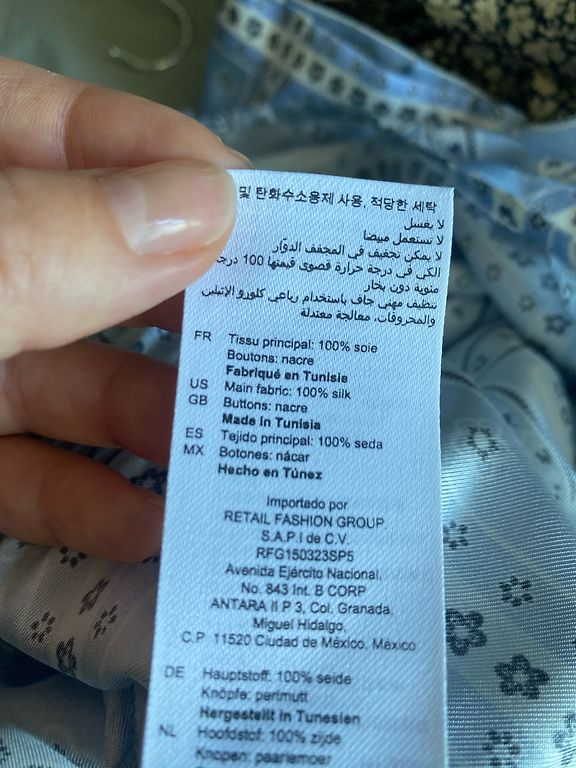 및 탄화수소용제 사용, 적당한 세탁
لا يغسل
لا تستعمل مبيضا
لا يمكن تجفيف في المجفف الدوّار
الكي في درجة حرارة قصوى قيمتها 100 درجة
مئوية دون بخار
تنظيف مهني جاف باستخدام رباعي كلورو الإتيلين
والمحروقات، معالجة معتدلة
FR Tissu principal: 100% soie
Boutons: nacre
Fabriqué en Tunisie
US Main fabric: 100% silk
GB Buttons: nacre
Made in Tunisia
ES Tejido principal: 100% seda
MX Botones: nácar
Hecho en Túnez
Importado por
RETAIL FASHION GROUP
S.A.P.I de C.V.
RFG150323SP5
Avenida Ejército Nacional,
No. 843 Int. B CORP
ANTARA II P 3, Col. Granada,
Miguel Hidalgo,
C.P 11520 Ciudad de México, México
DE Hauptstoff: 100% seide
Knöpfe: perlmutt
Hergestellt in Tunesien
NL Hoofdstof: 100% zijde
Knopen: paarlemoer